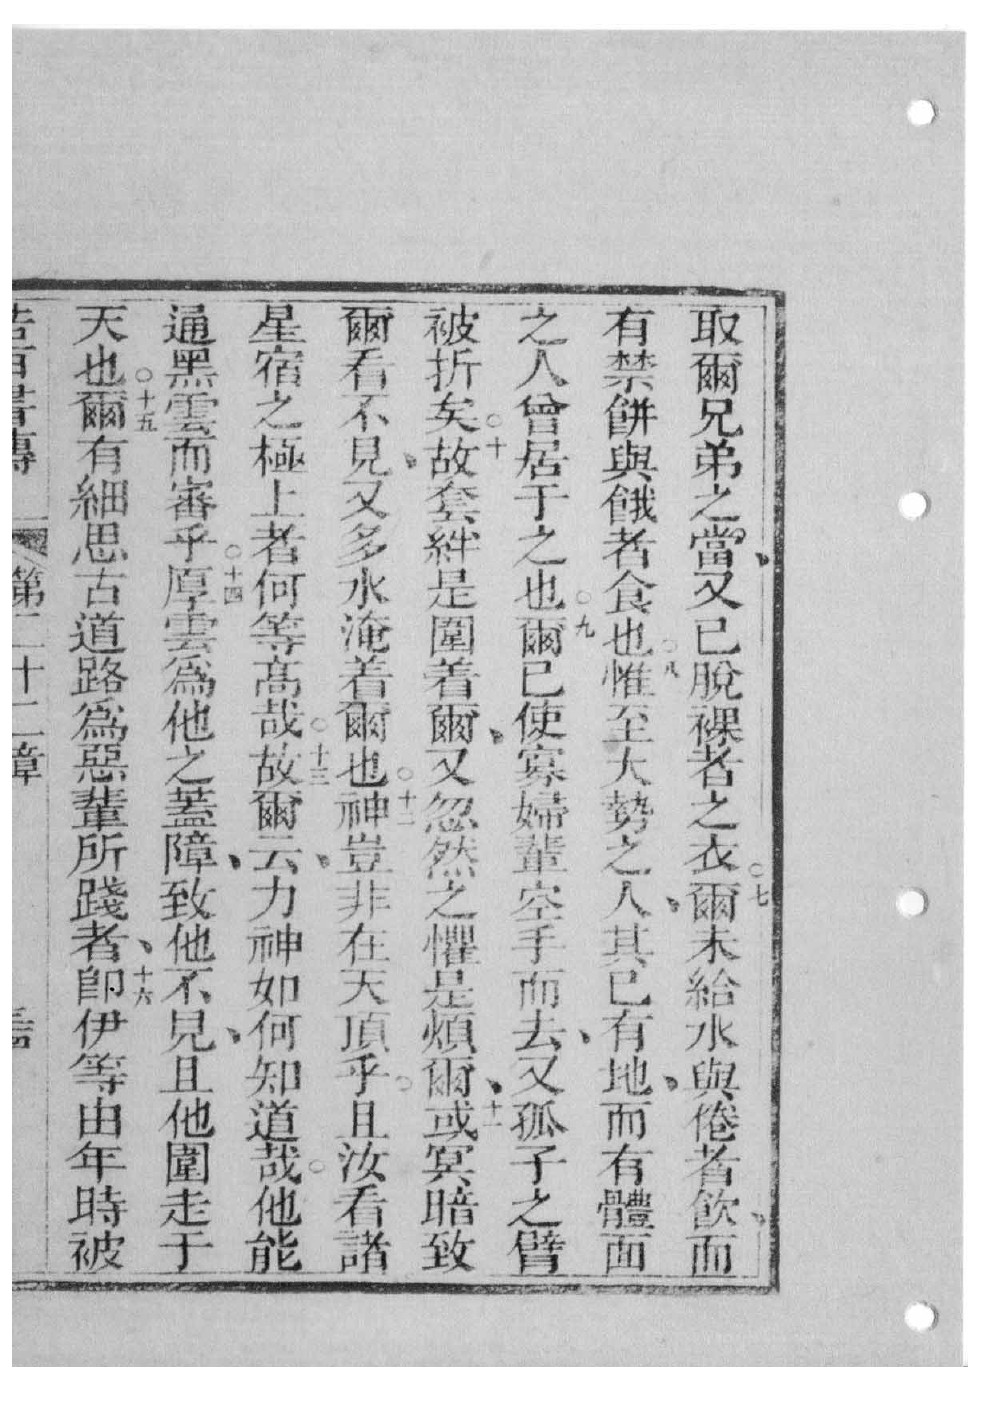 取爾兄弟之當、又已脫裸者之衣○七爾未給水與倦者飲、而
有禁餅與餓者食也○八惟至大勢之人、其已有地、而有體面
之人曾居于之也○九爾已使寡婦輩空手而去、又孤子之臂
被折矣○十故套絆是圍着爾、又忽然之懼是煩爾、十一或冥暗致
爾看不見、又多水淹着爾也○十二神豈非在天頂乎○且汝看諸
星宿之極上者何等高哉○十三故爾云、力神如何知道哉○他能
通黑雲而審乎○十四厚雲爲他之蓋障、致他不見、且他圍走于
天也○十五爾有細思古道路爲惡輩所踐者、十六卽伊等由年時被
第二十二章